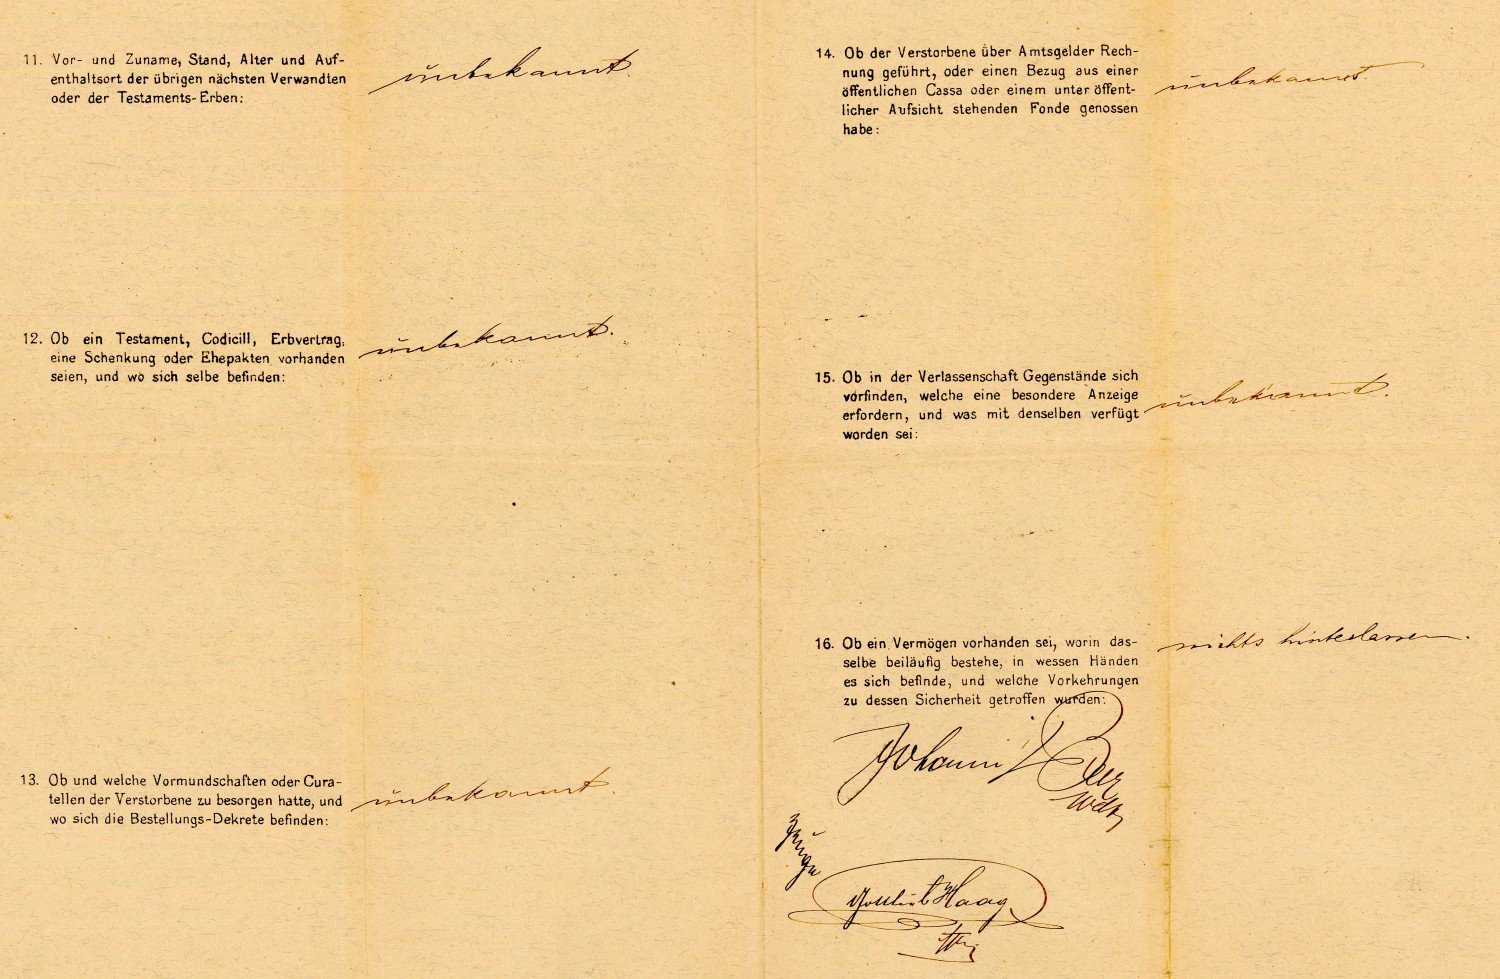 11. Vor- und Zuname, Stand, Alter und Auf-
enthaltsort der übrigen nächsten Verwandten
oder der Testaments-Erben:
unbekannt.
12. Ob ein Testament, Codicill, Erbvertrag,
eine Schenkung oder Ehepakten vorhanden
seien, und wo sich selbe befinden:
unbekannt.
13. Ob und welche Vormundschaften oder Cura-
tellen der Verstorbene zu besorgen hatte, und
wo sich die Bestellungs-Dekrete befinden:
unbekannt.
14. Ob der Verstorbene über Amtsgelder Rech-
nung geführt, oder einen Bezug aus einer
öffentlichen Cassa oder einem unter öffent-
licher Aufsicht stehenden Fonde genossen
habe:
unbekannt.
15. Ob in der Verlassenschaft Gegenstände sich
vorfinden, welche eine besondere Anzeige
erfordern, und was mit denselben verfügt
worden sei:
unbekannt.
16. Ob ein Vermögen vorhanden sei, worin das-
selbe beiläufig bestehe, in wessen Händen
es sich befinde, und welche Vorkehrungen
zu dessen Sicherheit getroffen wurden:
nichts hinterlassen.
Johann
Zeuge
Gottlieb Haag